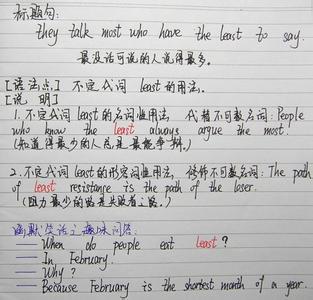 标题句:
they talk most who have the least to say.
最没话可说的人说得最多。
[语法点] 不定代词 least的用法。
[说 明]
1. 不定代词least的名词性用法, 代替不可数名词: People
who know the least always argue the most.
(知道得最少的人总是最能争辩。)
2. 不定代词least的形容词性用法, 修饰不可数名词: The path
of least resistance is the path of the loser.
(阻力最少的路是失败者之路。)
幽默笑话之趣味问答:
—— When do people eat least?
—— In February.
—— Why?
—— Because February is the shortest month of a year.